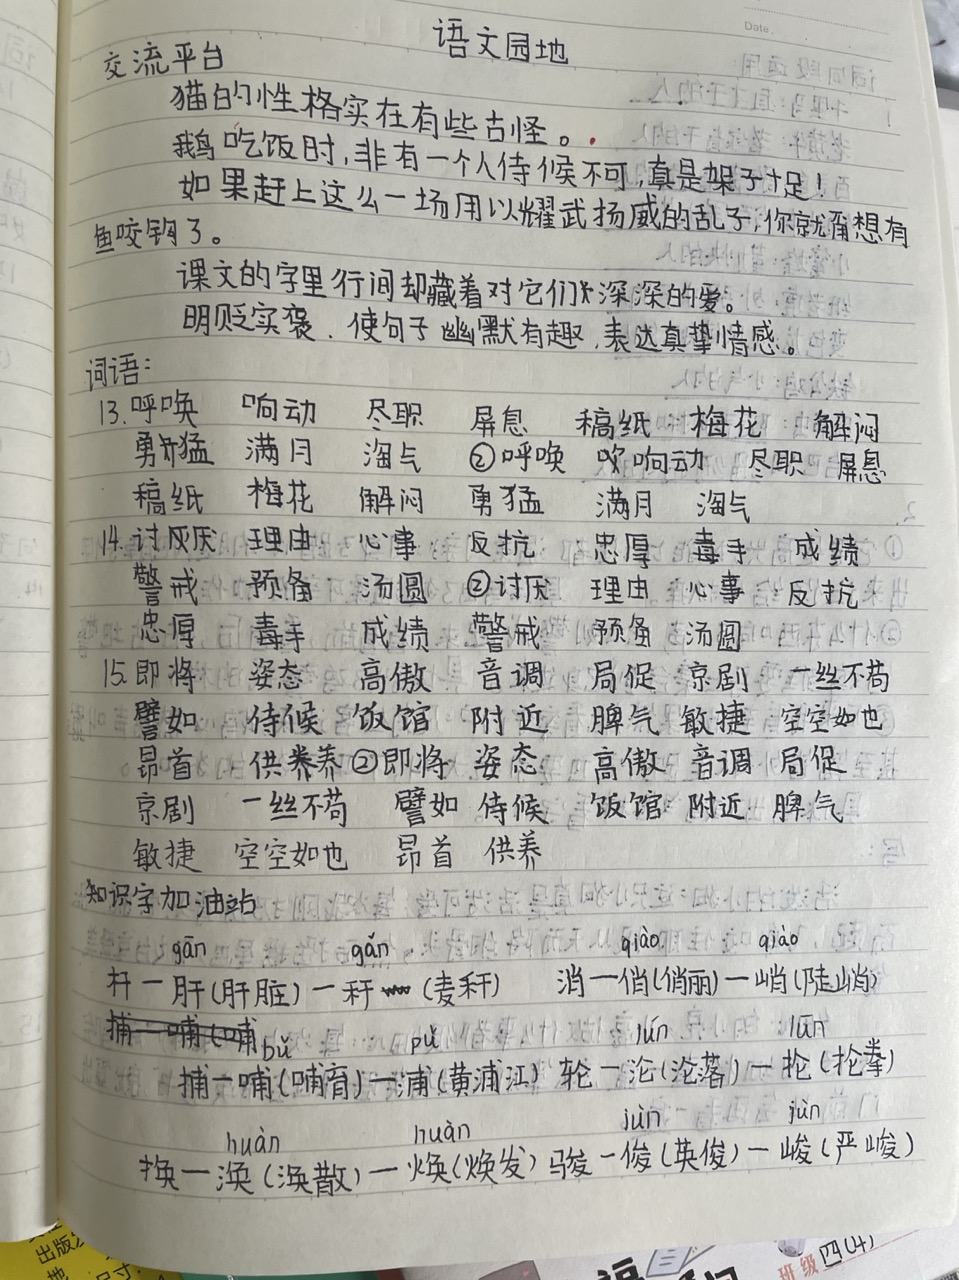 Date.
语文园地
交流平台
猫的性格实在有些古怪。
鹅吃饭时,非有一个人侍候不可,真是架子十足!
如果赶上这么一场用以耀武扬威的乱子,你就甭想有
鱼咬钩了。
课文的字里行间却藏着对它们深深的爱。
明贬实褒、使句子幽默有趣,表达真挚情感。
词语:
13.呼唤 响动 尽职 屏息 稿纸 梅花 解闷
勇猛 满月 淘气 ②呼唤 响动 尽职 屏息
稿纸 梅花 解闷 勇猛 满月 淘气
14.讨厌 理由 心事 反抗 忠厚 毒手 成绩
警戒 预备 汤圆 ②讨厌 理由 心事 反抗
忠厚 毒手 成绩 警戒 预备 汤圆
15.即将 姿态 高傲 音调 局促 京剧 一丝不苟
譬如 侍候 饭馆 附近 脾气 敏捷 空空如也
昂首 供养 ②即将 姿态 高傲 音调 局促
京剧 一丝不苟 譬如 侍候 饭馆 附近 脾气
敏捷 空空如也 昂首 供养
知识字加油站
gān gǎn qiào qiào
杆一肝(肝脏)一秆(麦秆) 消一俏(俏丽)一峭(陡峭)
捕一哺(哺
bǔ pǔ lún lūn
捕一哺(哺育)一浦(黄浦江) 轮一沦(沦落)一抡(抡拳)
huàn huàn jùn jùn
换一涣(涣散)一焕(焕发) 骏一俊(英俊)一峻(严峻)
班级 四(4)